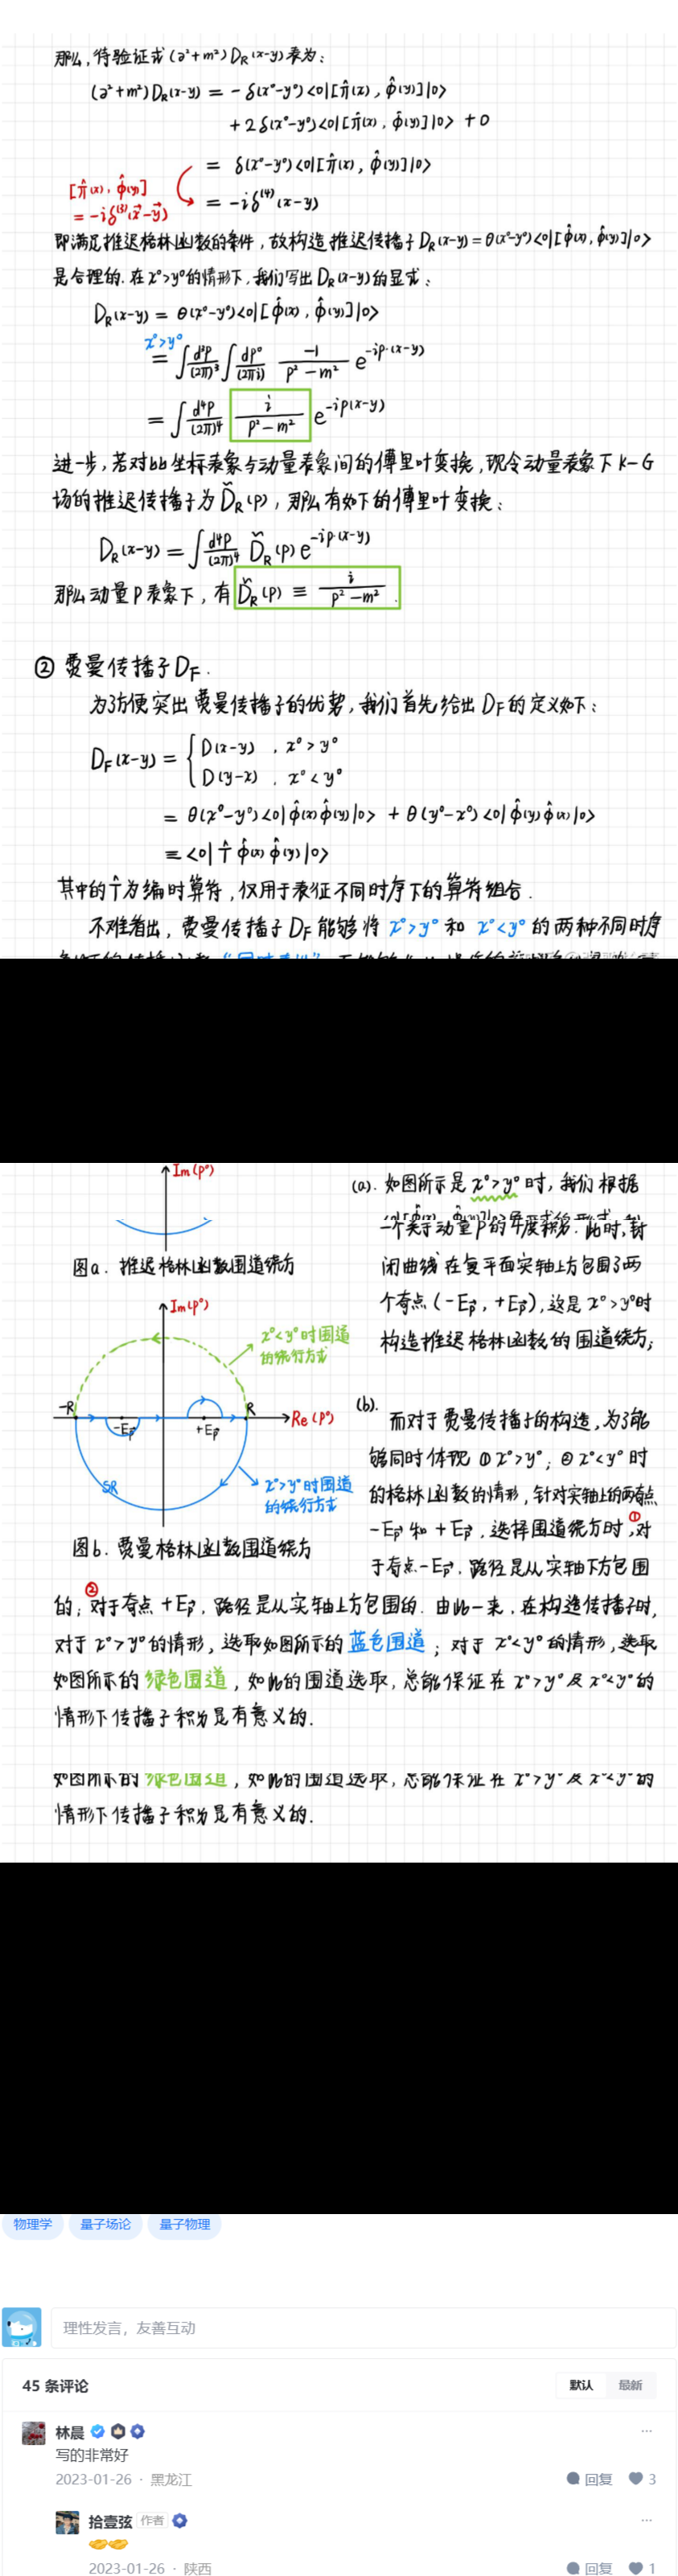 那么,待验证式(∂²+m²)D_R(x-y)表为:
(∂²+m²)D_R(x-y) = -δ(x⁰-y⁰)<0|[π̂(x), φ̂(y)]|0>
+2δ(x⁰-y⁰)<0|[π̂(x), φ̂(y)]|0> + 0
= δ(x⁰-y⁰)<0|[π̂(x), φ̂(y)]|0>
[π̂(x), φ̂(y)]
= -iδ⁽³⁾(x⃗-y⃗)
= -iδ⁽⁴⁾(x-y)
即满足推迟格林函数的条件,故构造推迟传播子D_R(x-y)=θ(x⁰-y⁰)<0|[φ̂(x), φ̂(y)]|0>
是合理的.在x⁰>y⁰的情形下,我们写出D_R(x-y)的显式:
D_R(x-y) = θ(x⁰-y⁰)<0|[φ̂(x), φ̂(y)]|0>
x⁰>y⁰
= ∫d³p/(2π)³ ∫dp⁰/(2πi) -1/(p²-m²) e^{-ip·(x-y)}
= ∫d⁴p/(2π)⁴ i/(p²-m²) e^{-ip(x-y)}
进一步,若对比坐标表象与动量表象间的傅里叶变换,现令动量表象下K-G
场的推迟传播子为D̃_R(p),那么有如下的傅里叶变换:
D_R(x-y) = ∫d⁴p/(2π)⁴ D̃_R(p) e^{-ip·(x-y)}
那么动量P表象下,有D̃_R(p) ≡ i/(p²-m²).
② 费曼传播子D_F.
为了方便突出费曼传播子的优势,我们首先给出D_F的定义如下:
D_F(x-y) = { D(x-y) , x⁰>y⁰
D(y-x) , x⁰<y⁰
= θ(x⁰-y⁰)<0|φ̂(x)φ̂(y)|0> + θ(y⁰-x⁰)<0|φ̂(y)φ̂(x)|0>
≡ <0|T̂ φ̂(x)φ̂(y)|0>
其中的T̂为编时算符,仅用于表征不同时序下的算符组合.
不难看出,费曼传播子D_F能够将x⁰>y⁰和x⁰<y⁰的两种不同时序
Im(p⁰)
图a. 推迟格林函数围道绕方
(a). 如图所示是x⁰>y⁰时,我们根据
一个关于动量P的4度积分.此时,封
闭曲线在复平面实轴上方包围了两
个奇点(-E_p⃗, +E_p⃗),这是x⁰>y⁰时
构造推迟格林函数的围道绕方;
Im(p⁰)
x⁰<y⁰时围道
的绕行方式
-R
-E_p⃗
+E_p⃗
R
Re(p⁰)
SR
x⁰>y⁰时围道
的绕行方式
图b. 费曼格林函数围道绕方
(b). 而对于费曼传播子的构造,为了能
够同时体现①x⁰>y⁰;②x⁰<y⁰时
的格林函数的情形,针对实轴上的两奇点
-E_p⃗和+E_p⃗,选择围道绕方时,①对
于奇点-E_p⃗,路径是从实轴下方包围
的;②对于奇点+E_p⃗,路径是从实轴上方包围的.由此一来,在构造传播子时,
对于x⁰>y⁰的情形,选取如图所示的蓝色围道;对于x⁰<y⁰的情形,选取
如图所示的绿色围道,如此的围道选取,总能保证在x⁰>y⁰及x⁰<y⁰的
情形下传播子积分是有意义的.
如图所示的绿色围道,如此的围道选取,总能保证在x⁰>y⁰及x⁰<y⁰的
情形下传播子积分是有意义的.
物理学 量子场论 量子物理
理性发言,友善互动
45 条评论 默认 最新
林晨
写的非常好
2023-01-26 · 黑龙江 回复 3
拾壹弦 作者
2023-01-26 · 陕西 回复 1